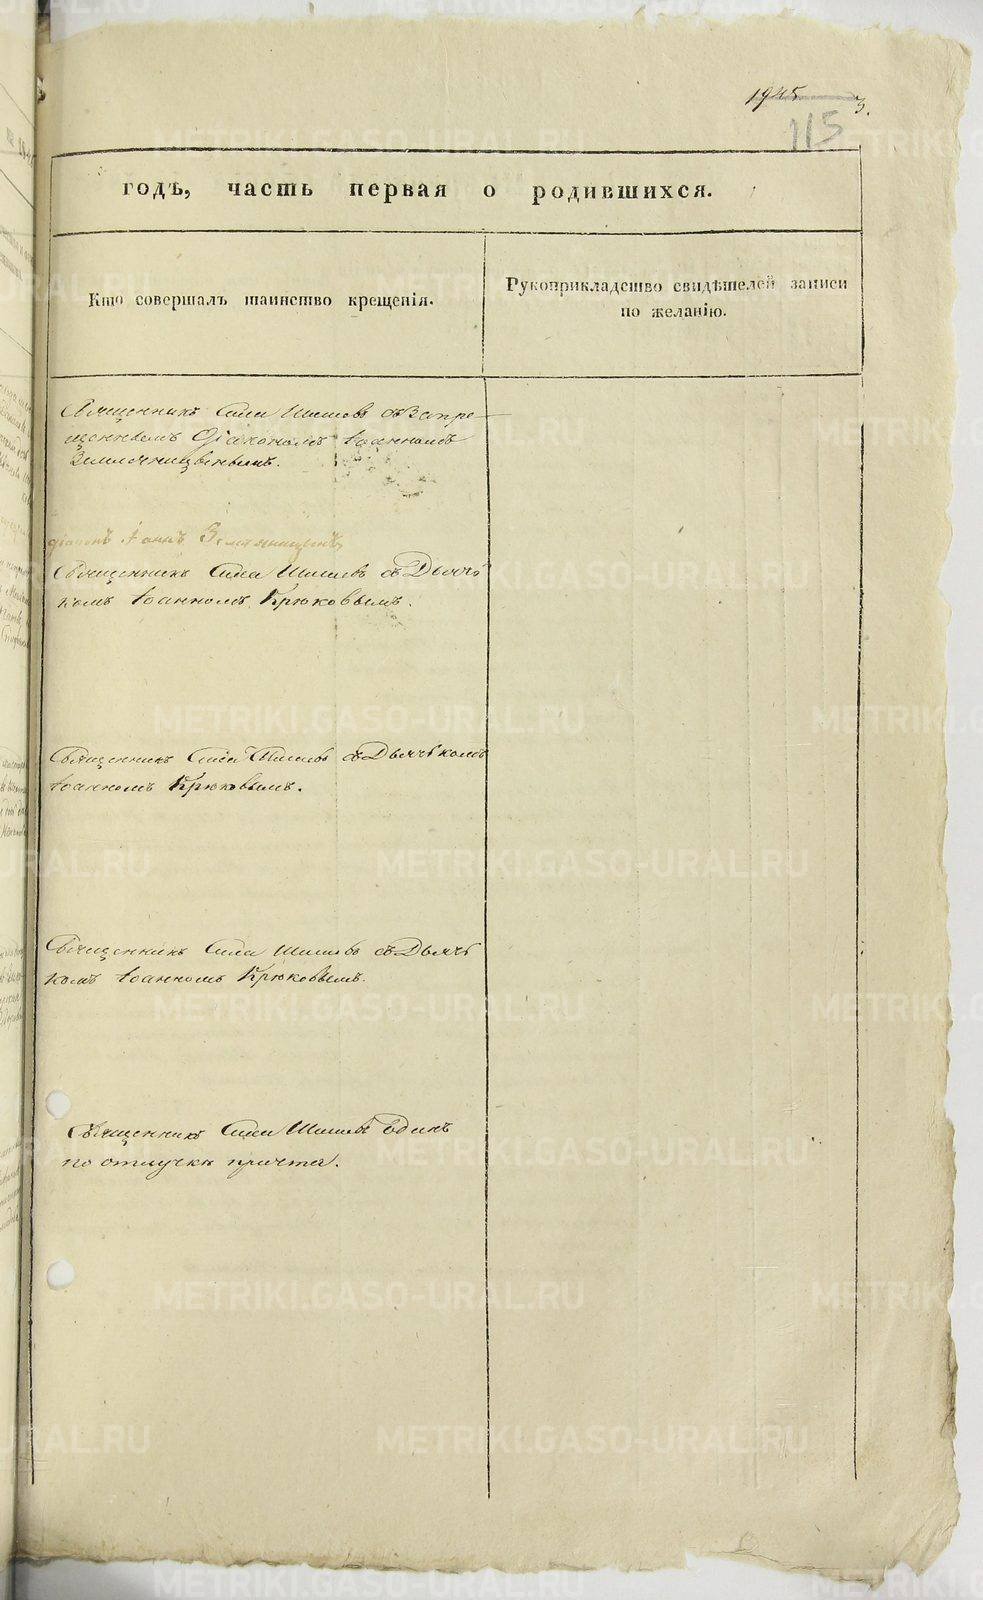 1945 3.
115
годѣ, часть первая о родившихся.
Кто совершалъ таинство крещенія.
Рукоприкладство свидѣтелей записи
по желанію.
Священникъ Сила Шишовъ съ Запре-
щеннымъ Діакономъ Іоанномъ
Земляницынымъ.
діаконъ Іоаннъ Земляницынъ
Священникъ Сила Шишовъ съ Дьячь
комъ Іоанномъ Крюковымъ.
Священникъ Сила Шишовъ съ Дьячькомъ
Іоанномъ Крюковымъ.
Священникъ Сила Шишовъ съ Дьячь
комъ Іоанномъ Крюковымъ.
Священникъ Сила Шишовъ одинъ
по отлучкѣ причта.
METRIKI.GASO-URAL.RU